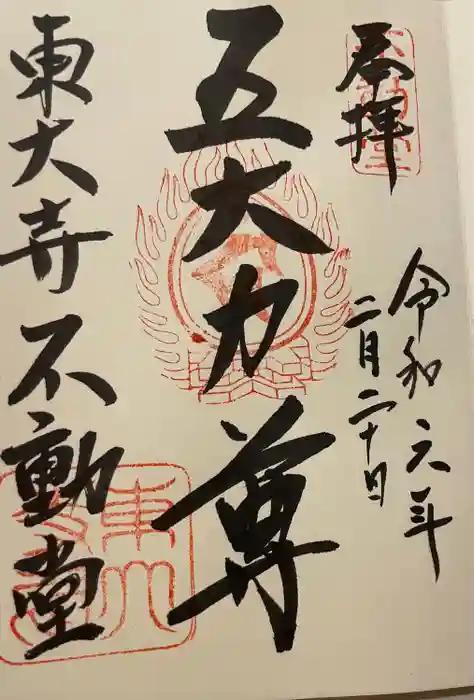 奉拝
令和六年
二月二十日
五大力尊
東大寺不動堂
不動堂